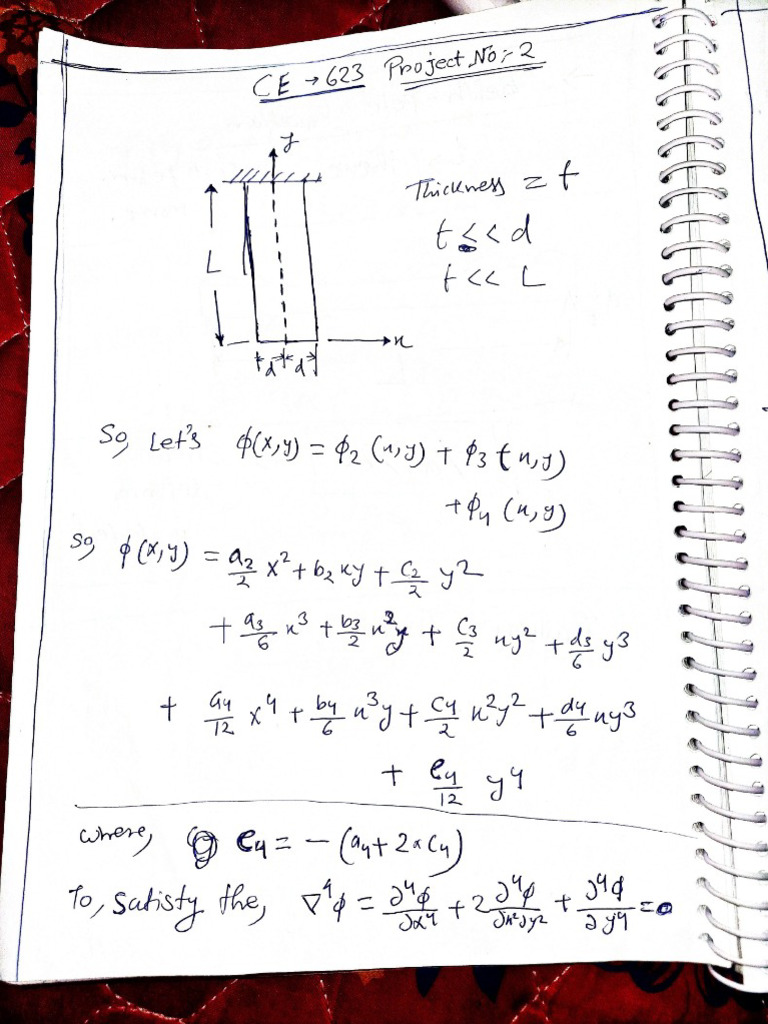 CE → 623 Project No:- 2
y
Thickness = t
t << d
t << L
L
x
d d
So, Let's ϕ(x,y) = ϕ2 (x,y) + ϕ3 (x,y)
+ ϕ4 (x,y)
So, ϕ(x,y) = a2/2 x² + b2 xy + c2/2 y²
+ a3/6 x³ + b3/2 x²y + c3/2 xy² + d3/6 y³
+ a4/12 x⁴ + b4/6 x³y + c4/2 x²y² + d4/6 xy³
+ e4/12 y⁴
where, e4 = - (a4 + 2 x c4)
To, satisfy the, ∇⁴ϕ = ∂⁴ϕ/∂x⁴ + 2 ∂⁴ϕ/∂x²∂y² + ∂⁴ϕ/∂y⁴ = 0